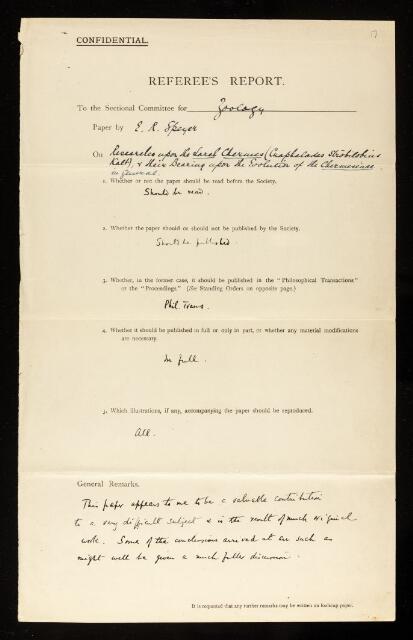 17
CONFIDENTIAL.
REFEREE'S REPORT.
To the Sectional Committee for Zoology
Paper by E. R. Speyer
On Researches upon the Larch Chermes (Cnaphalodes Strobilobius
Kalt), & their Bearing upon the Evolution of the Chermesinae
in general.
1. Whether or not the paper should be read before the Society.
Should be read.
2. Whether the paper should or should not be published by the Society.
Should be published.
3. Whether, in the former case, it should be published in the "Philosophical Transactions"
or the "Proceedings." (See Standing Orders on opposite page.)
Phil. Trans.
4. Whether it should be published in full or only in part, or whether any material modifications
are necessary.
In full.
5. Which illustrations, if any, accompanying the paper should be reproduced.
All.
General Remarks.
This paper appears to me to be a valuable contribution
to a very difficult subject & is the result of much original
work. Some of the conclusions arrived at are such as
might well be given a much fuller discussion.
It is requested that any further remarks may be written on foolscap paper.